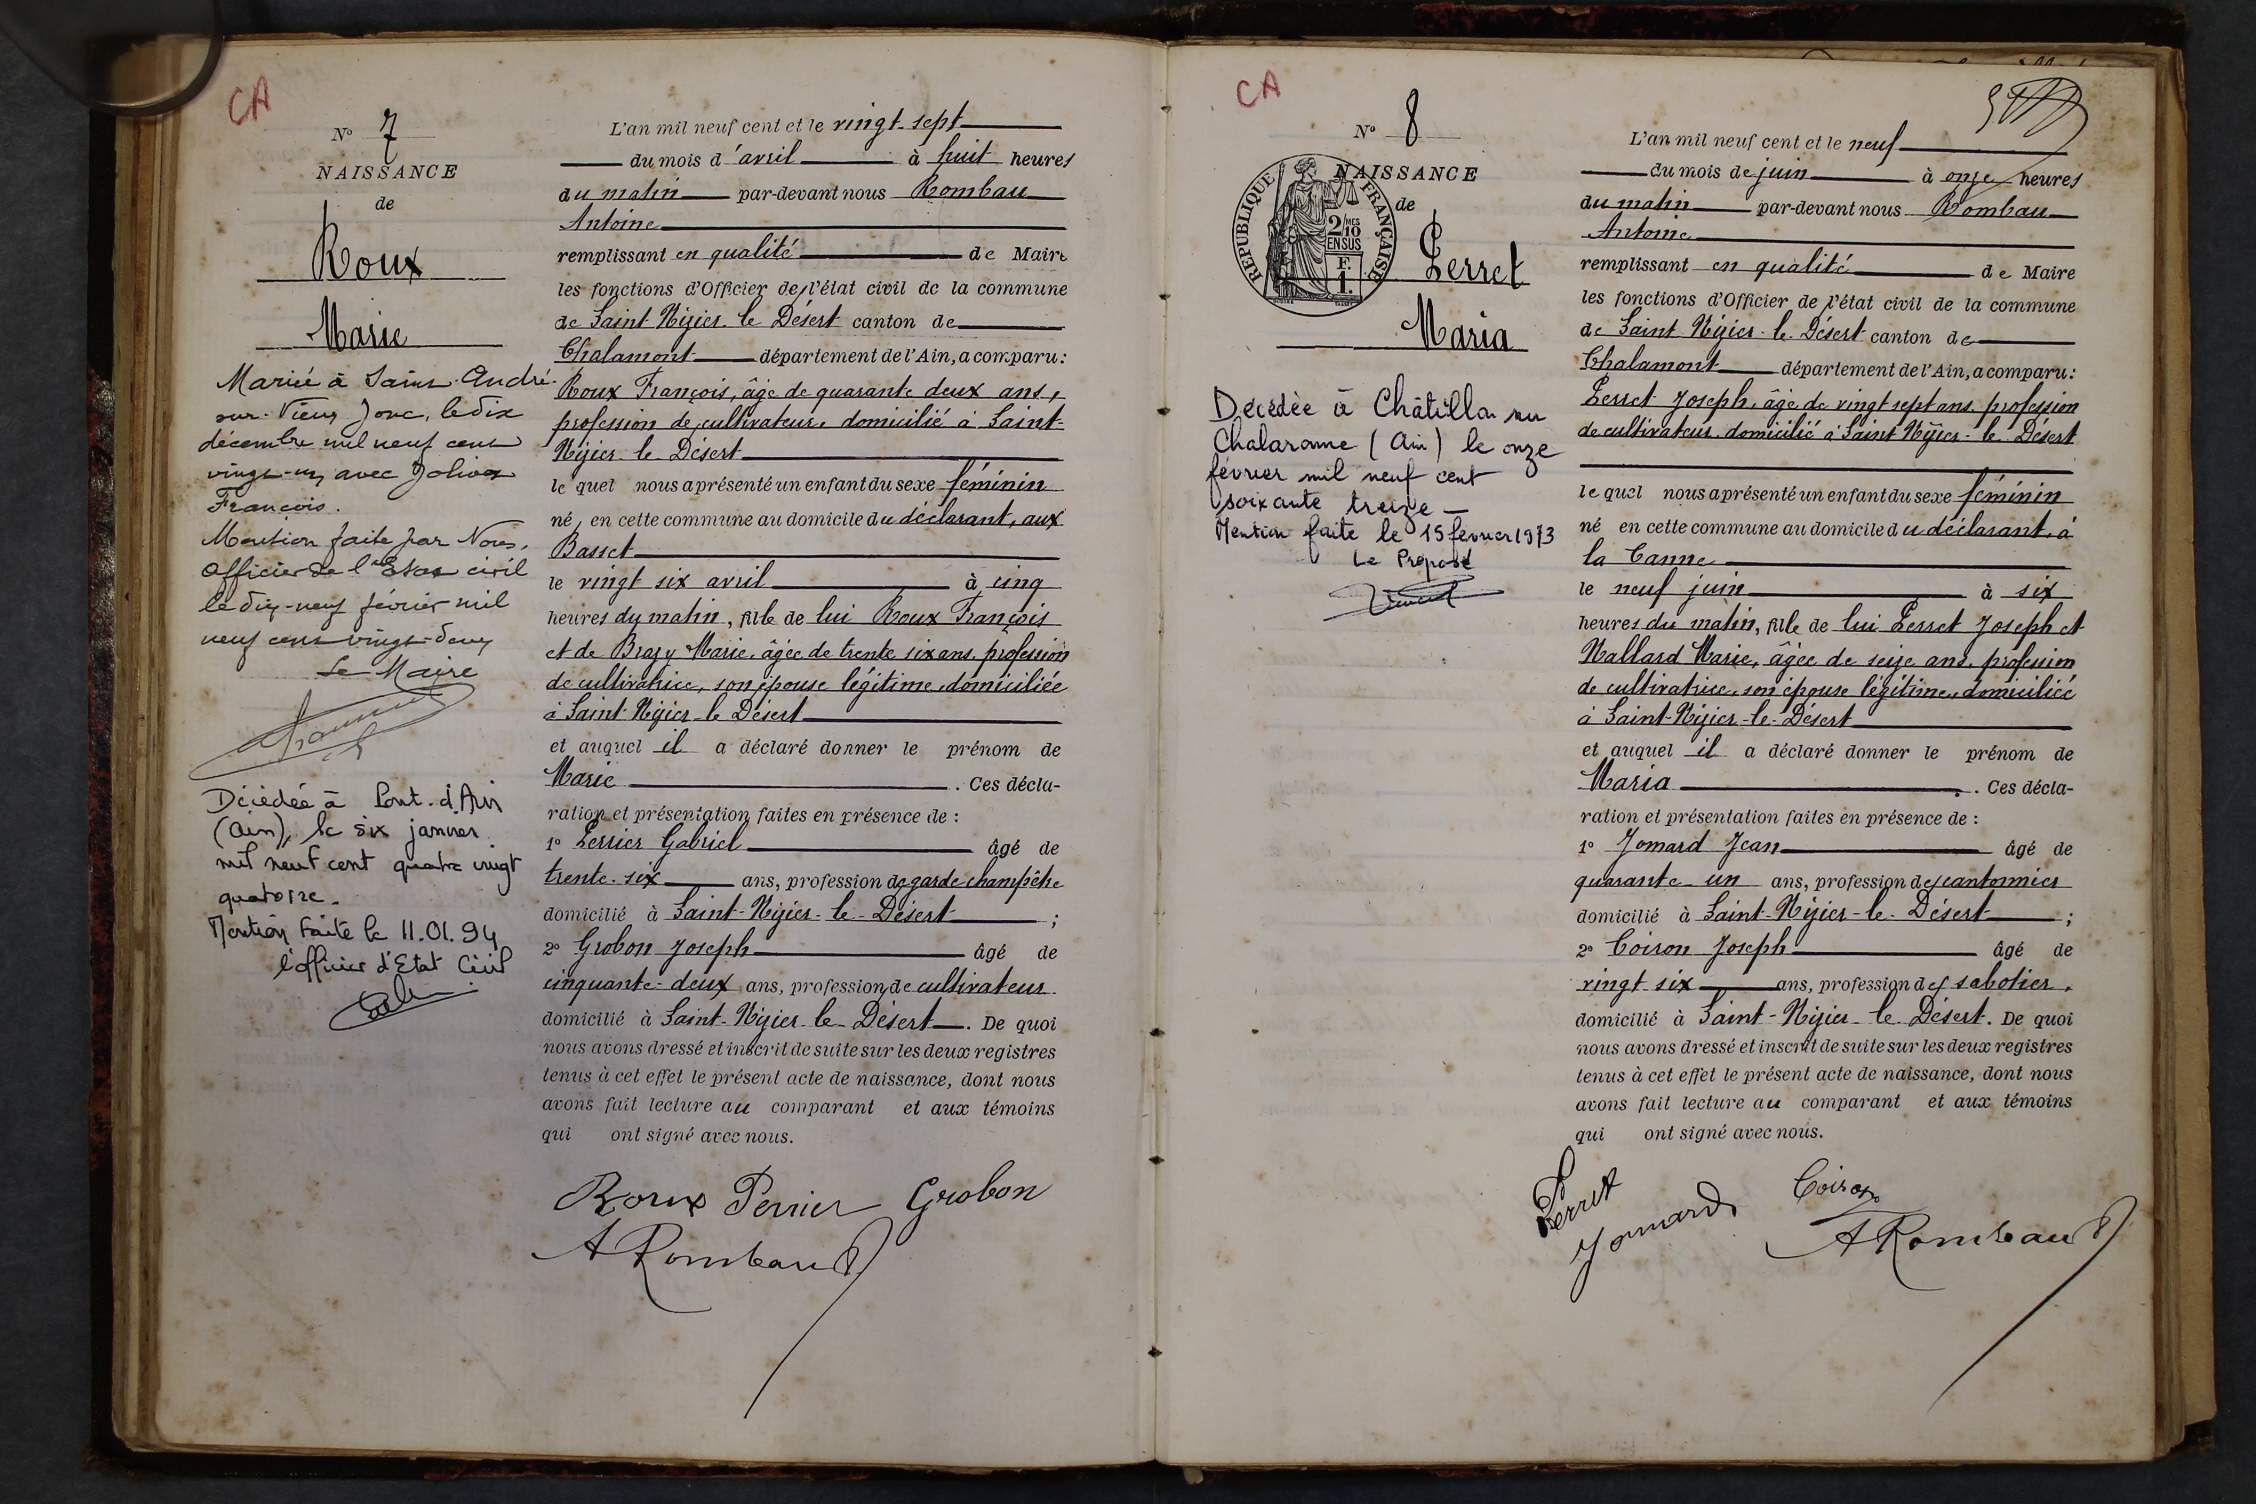 CA
N° 7
NAISSANCE
de
Roux
Marie
Mariée à Saint-André-
sur-Vieux Jonc, le dix
décembre mil neuf cent
vingt-un, avec Jolivet
François.
Mention faite par Nous,
Officier de l'Etat civil
le dix-neuf février mil
neuf cent vingt-deux
Le Maire
Décédée à Pont-d'Ain
(Ain), le six janvier
mil neuf cent quatre vingt
quatorze.
Mention faite le 11.01.94
l'officier d'Etat Civil
L'an mil neuf cent et le vingt-sept
du mois d'avril à huit heures
du matin par-devant nous Rombau
Antoine
remplissant en qualité de Maire
les fonctions d'Officier de l'état civil de la commune
de Saint Nizier-le Désert canton de
Chalamont département de l'Ain, a comparu :
Roux François, âgé de quarante deux ans,
profession de cultivateur, domicilié à Saint-
Nizier-le Désert
le quel nous a présenté un enfant du sexe féminin
né, en cette commune au domicile du déclarant, aux
Basset
le vingt six avril à cinq
heures du matin, fille de lui Roux François
et de Brazy Marie, âgée de trente six ans, profession
de cultivatrice, son épouse légitime, domiciliée
à Saint-Nizier-le Désert
et auquel il a déclaré donner le prénom de
Marie . Ces décla-
ration et présentation faites en présence de :
1° Perrier Gabriel âgé de
trente-six ans, profession de garde champêtre
domicilié à Saint-Nizier-le-Désert ;
2° Grobon Joseph âgé de
cinquante-deux ans, profession de cultivateur
domicilié à Saint-Nizier-le-Désert. De quoi
nous avons dressé et inscrit de suite sur les deux registres
tenus à cet effet le présent acte de naissance, dont nous
avons fait lecture au comparant et aux témoins
qui ont signé avec nous.
Roux Perrier Grobon
A Rombau
CA
N° 8
NAISSANCE
de
RÉPUBLIQUE FRANÇAISE
2/10 MES
EN SUS
F.
1.
Perret
Maria
Décédée à Châtillon sur
Chalaronne (Ain) le onze
février mil neuf cent
soixante treize —
Mention faite le 15 février 1973
Le Préposé
L'an mil neuf cent et le neuf
du mois de juin à onze heures
du matin par-devant nous Rombau
Antoine
remplissant en qualité de Maire
les fonctions d'Officier de l'état civil de la commune
de Saint Nizier-le-Désert canton de
Chalamont département de l'Ain, a comparu :
Perret Joseph, âgé de vingt sept ans, profession
de cultivateur, domicilié à Saint Nizier-le-Désert
le quel nous a présenté un enfant du sexe féminin
né en cette commune au domicile du déclarant, à
la Canne
le neuf juin à six
heures du matin, fille de lui Perret Joseph et
Mallard Marie, âgée de seize ans, profession
de cultivatrice, son épouse légitime, domiciliée
à Saint-Nizier-le-Désert
et auquel il a déclaré donner le prénom de
Maria . Ces décla-
ration et présentation faites en présence de :
1° Jomard Jean âgé de
quarante-un ans, profession de cantonnier
domicilié à Saint-Nizier-le-Désert ;
2° Coiron Joseph âgé de
vingt six ans, profession de sabotier,
domicilié à Saint-Nizier-le-Désert. De quoi
nous avons dressé et inscrit de suite sur les deux registres
tenus à cet effet le présent acte de naissance, dont nous
avons fait lecture au comparant et aux témoins
qui ont signé avec nous.
Perret Jomard Coiron
A Rombau